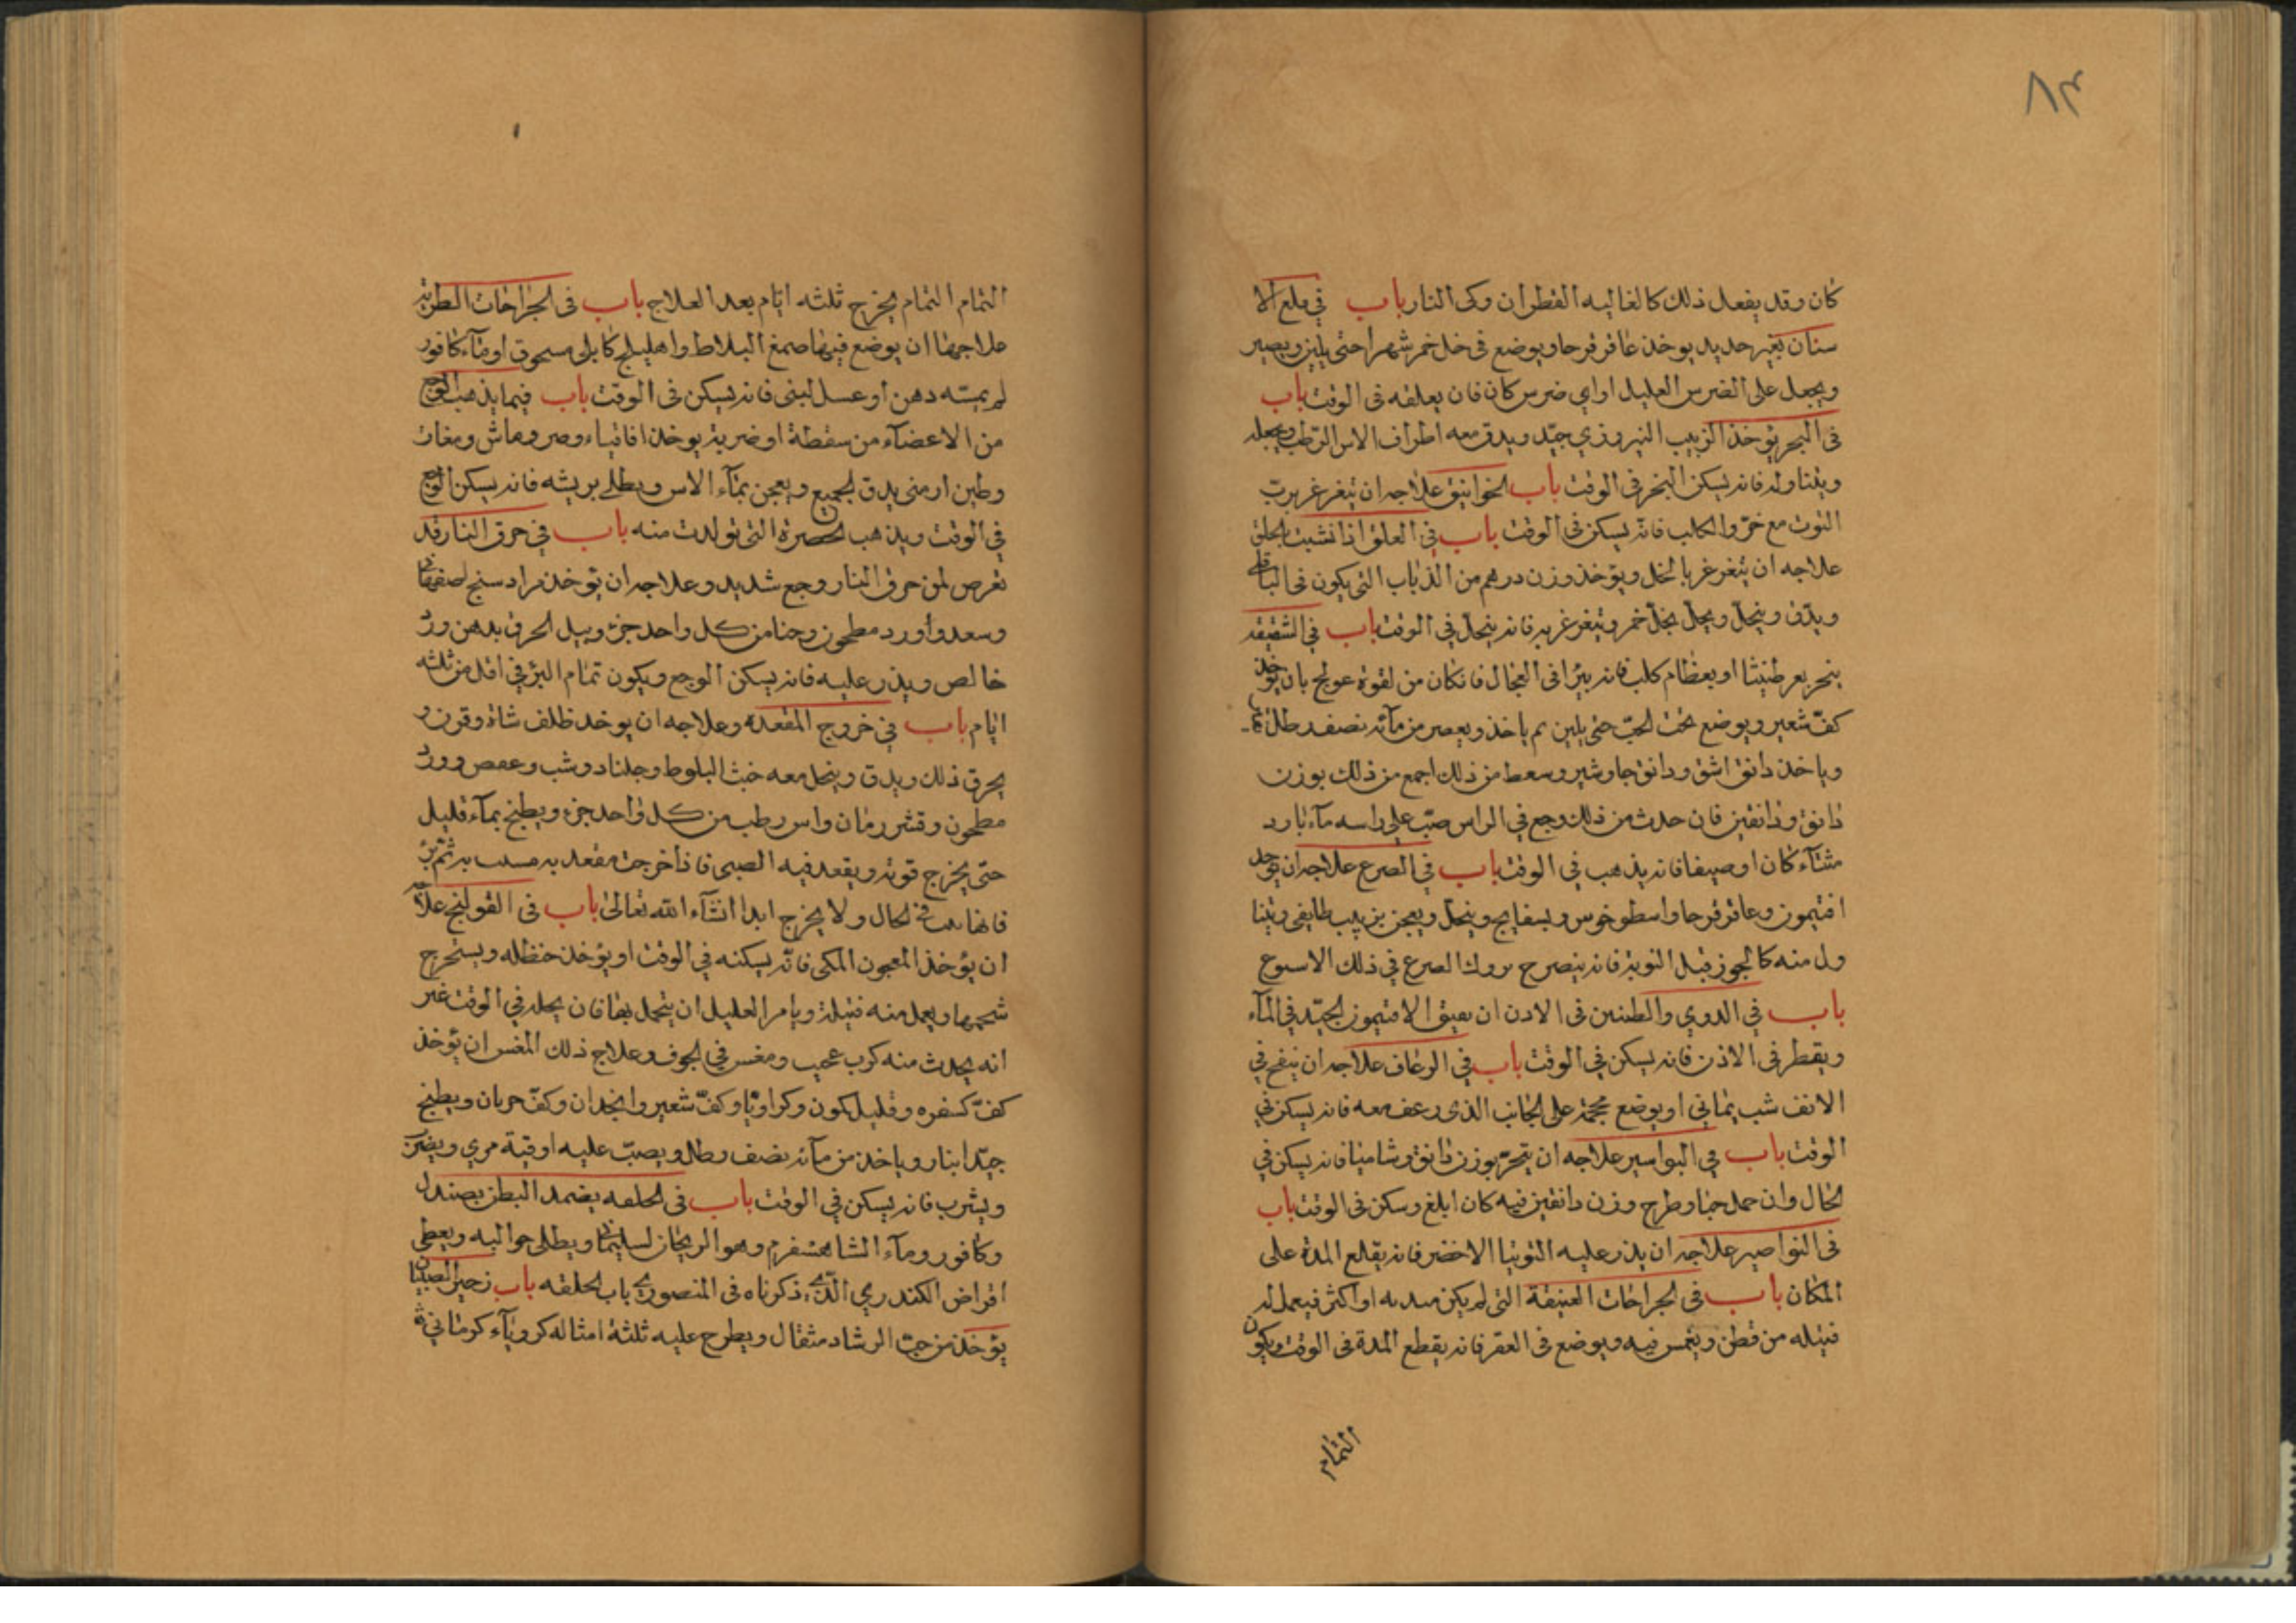 ٨٣
كان وقد يفعل ذلك كالغاليه القطران وكى النار باب في قلع الا
سنان بغير حديد يوخذ عاقرقرحا ويوضع فى خل خمر شهرا حتى يلين ويصير
ويجعل على الضرس العليل او اي ضرس كان فان يعلقه فى الوقت باب
فى البخر يؤخذ الزبيب النيروزي جيّد ويدق معه اطراف الاس الرّطب ويجعله
ويتناوله فانه يسكن البخر في الوقت باب الخوانيق علاجه ان يتغرغر بربّ
التوت مع خرّو الكلب فانّه يسكن فى الوقت باب في العلق اذا نشبت بالحلق
علاجه ان يتغرغر بالخل ويؤخذ وزن درهم من الذباب التى يكون فى الباقلى
ويدّق وينحلّ ويحلّ بخلّ خمر ويتغرغر به فانه ينحلّ في الوقت باب في الشقيقه
بنحر بعرطنيثا او بعظام كلب فانه يبرا فى العجال فانكان من لقوة عولج بان يؤخذ
كفّ شعير ويوضع تحت الحبّ حتى يلين ثم ياخذ ويعصر من مآئه نصف رطل
وياخذ دانق اشق ودانق جاوشير وسعط من ذلك اجمع من ذلك بوزن
دانق ودانقين فان حدث من ذلك وجع في الراس صبّ على راسه مآء بارد
شتآء كان او صيفا فانه يذهب في الوقت باب في الصرع علاجه ان يؤخذ
افتيمون وعاقرقرحا واسطوخوس وبسفايج وينحلّ ويعجن بزبيب طايفي ويتنا
ول منه كالجوز قبل النوبة فانه ينصرح الصرع في ذلك الاسبوع
باب في الدوي والطنين فى الاذن ان يعيق الافتيمون الجيّد فى المآء
ويقطر فى الاذن فانه يسكن في الوقت باب في الرعاف علاجه ان ينفح في
الانف شب يمانى او يوضع محجمة على الجانب الذى رعف معه فانه يسكن في
الوقت باب في البواسير علاجه ان يتبخّر بوزن دانق وشاميا فانه يسكن في
الحال وان حمل حبا وطرح وزن دانقين فيه كان ابلغ وسكن فى الوقت باب
فى النواصير علاجه ان يذر عليه التوتيا الاخضر فانه يقلع المدة على
المكان باب فى الجراحات العتيقة التى لم يكن او اكثر فيعمل له
فتيله من قطن ويغمس فيه ويوضع فى العقر فانه يقطع المدة فى الوقت ويكون
التمام
التمام التمام يخرج ثلثه ايّام بعد العلاج باب فى الجراحات الطريّه
علاجها ان يوضع فيها صمغ البلاط واهليلج كابلى مسحوق او مآء كافور
لم يمسّه دهن او عسل لبنى فانه يسكن فى الوقت باب فيما يذهب الوجع
من الاعضآء من سقطة او ضربة يوخذ اقاقياء وصبر وماش ومغاث
وطين ارمنى يدق الجميع ويعجن بمآء الاس ويطلى بريشه فانه يسكن الوجع
في الوقت ويذهب الخضرة التى تولدت منه باب في حرق النار قد
تعرض لمن حرق النار وجع شديد وعلاجه ان تؤخذ مرادسنج
وسعد وأورد مطحون وحنا من كل واحد جزء ويبل الحرق بدهن ورد
خالص ويذر عليه فانه يسكن الوجع ويكون تمام البرء في اقل من ثلثه
ايّام باب في خروج المقعدة وعلاجه ان يوخذ ظلف شاة وقرن و
يحرق ذلك ويدق وينحل معه خبث البلوط وجلنار وشب وعفص وورد
مطحون وقشر رمان واس رطب من كل واحد جزء ويطبخ بمآء قليل
حتى يخرج قوته ويقعد فيه الصبى فاذا خرجت مقعدته به ثم
فانها فى الحال ولا يخرج ابدا انشآء الله تعالى باب فى القولنج علاجه
ان يؤخذ المعجون المكى فانّه يسكنه في الوقت او يؤخذ حنظله ويستخرج
شحمها ويعمل منه فتيلة ويامر العليل ان يتحمل بها فان يحله في الوقت غير
انه يحدث منه كرب عجيب ومغس في الجوف وعلاج ذلك المغس ان يؤخذ
كفّ كسفره وقليل كمون وكراويا وكفّ شعير وانجدان وكفّ ويطبخ
جيّدا بنار وياخذ من مآئه نصف رطل ويصبّ عليه اوقية مري ويضرب
ويشرب فانه يسكن في الوقت باب فى الخلفه يضمد البطن بصندل
وكافور ومآء الشاهسفرم وهو الريحان لسليمان ويطلى حواليه ويعطى
اقراص الكندري الّتى ذكرناه فى المنصوري باب الخلقه باب زحير الصبيان
يؤخذ من حبّ الرشاد مثقال ويطرح عليه ثلثة امثاله كرويآء كرمانى